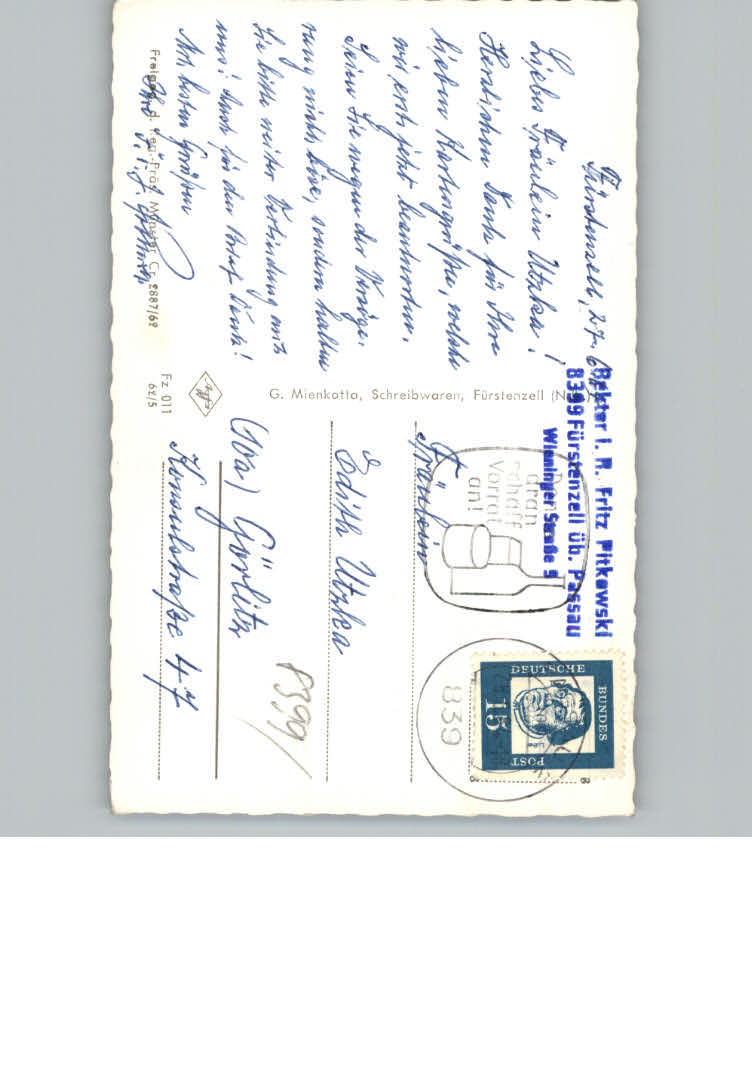 Fürstenzell, 27. 6.
Liebes Fräulein Utzka!
Herzlichen Dank für Ihre
lieben Kartengrüße, welche
wir erst jetzt beantworten.
Seien Sie wegen der Verzöge-
rung nicht böse, sondern halten
Sie bitte weiter Verbindung mit
uns! Auch für den Brief Dank!
Mit besten Grüßen
Ihre
Freigeg. d. Reg.-Präs. Münster Cr 2887/62
Fz 011
62/5
Agfa
G. Mienkotta, Schreibwaren, Fürstenzell
Rektor i. R. Fritz Pitkowski
8399 Fürstenzell üb. Passau
Wieninger Straße 9
Denk
dran
schaff
Vorrat
an!
839
DEUTSCHE
BUNDES
POST
15
Fräulein
Edith Utzka
(10a) Görlitz
Konsulstraße 47
8399/